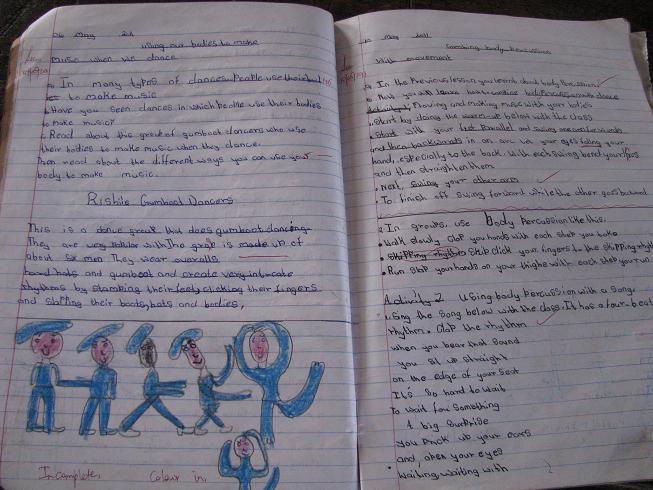 06 May 2011
using our bodies to make
music when we dance
In many types of dances People use their bodi
es to make music
Have you seen dances in which People use their bodies
to make music?
Read about this group of gumboot dancers who use
their bodies to make music when they dance.
Then read about the different ways you can use your
body to make music.
Rishile Gumboot Dancers
This is a dance group that does gumboot dancing
They are very with The group is made up of
about six men They wear overalls
hard hats and gumboot and create very intricate
rhythms by stamping their feet, clicking their fingers
and slapping their boots, hats and bodies,
Incomplete. Colour in.
May 2011
Combining body Percussion
With movement
In the Previous lesson you learnt about body Percussion.
Now you will learn how to combine body Percussion with dance
Moving and making music with your bodies
Start by doing the warm-up below with the class
Start with your feet Parallel and swing
and then backwards in an arc. with your eyes
hand, especially to the back. with each swing bend your
and then straighten them
Next, swing your other arm
To finish off swing forward while the other goes backward
In groups, use body Percussion like this.
Walk slowly clap you hands with each step you take
Skip click your fingers to the skipping rhythm
Run slap your hands on your thighs with each step you run
Activity 2 Using body Percussion with a Song.
sing the Song below with the class. It has a four-beat
rhythm. Clap the rhythm
when you hear that Sound
you sit up straight
on the edge of your Seat
It's so hard to wait
To wait for Something
A big Surprise
you Prick up your ears
and open your eyes
Waiting, waiting with